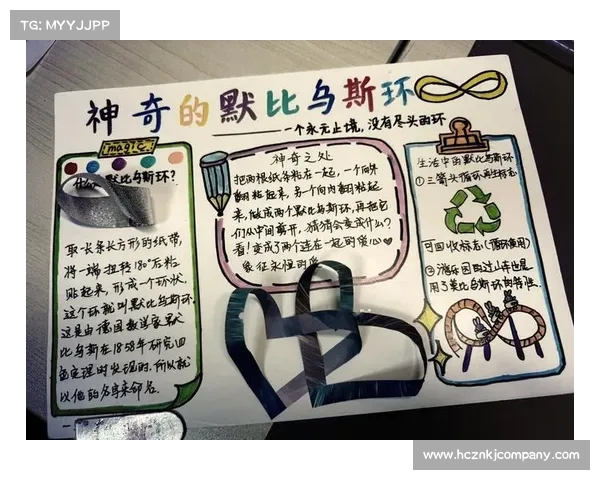 TG: MYYJJPP
神奇的默比乌斯环
一个永无止境,没有尽头的环
magic
默比乌斯环?
取一长条长方形的纸带,
将一端扭转180°后粘
贴起来,形成一个环状,
这个环就叫默比乌斯环.
这是由德国数学家默
比乌斯在1858年研究四
色定理时发现的,所以就
以他的名字来命名.
神奇之处
把两根纸条粘在一起,一个向外
翻粘起来,另一个向内翻粘起
来,做成两个默比乌斯环,再把它
们从中间剪开,猜猜会变成什么?
看!变成了两个连在一起的爱心
象征永恒的爱
生活中的默比乌斯环
①三箭头循环再生标志
可回收标志(循环使用)
②游乐园的过山车也是
用了莫比乌斯环的特性.
www.hcznkjcompany.com